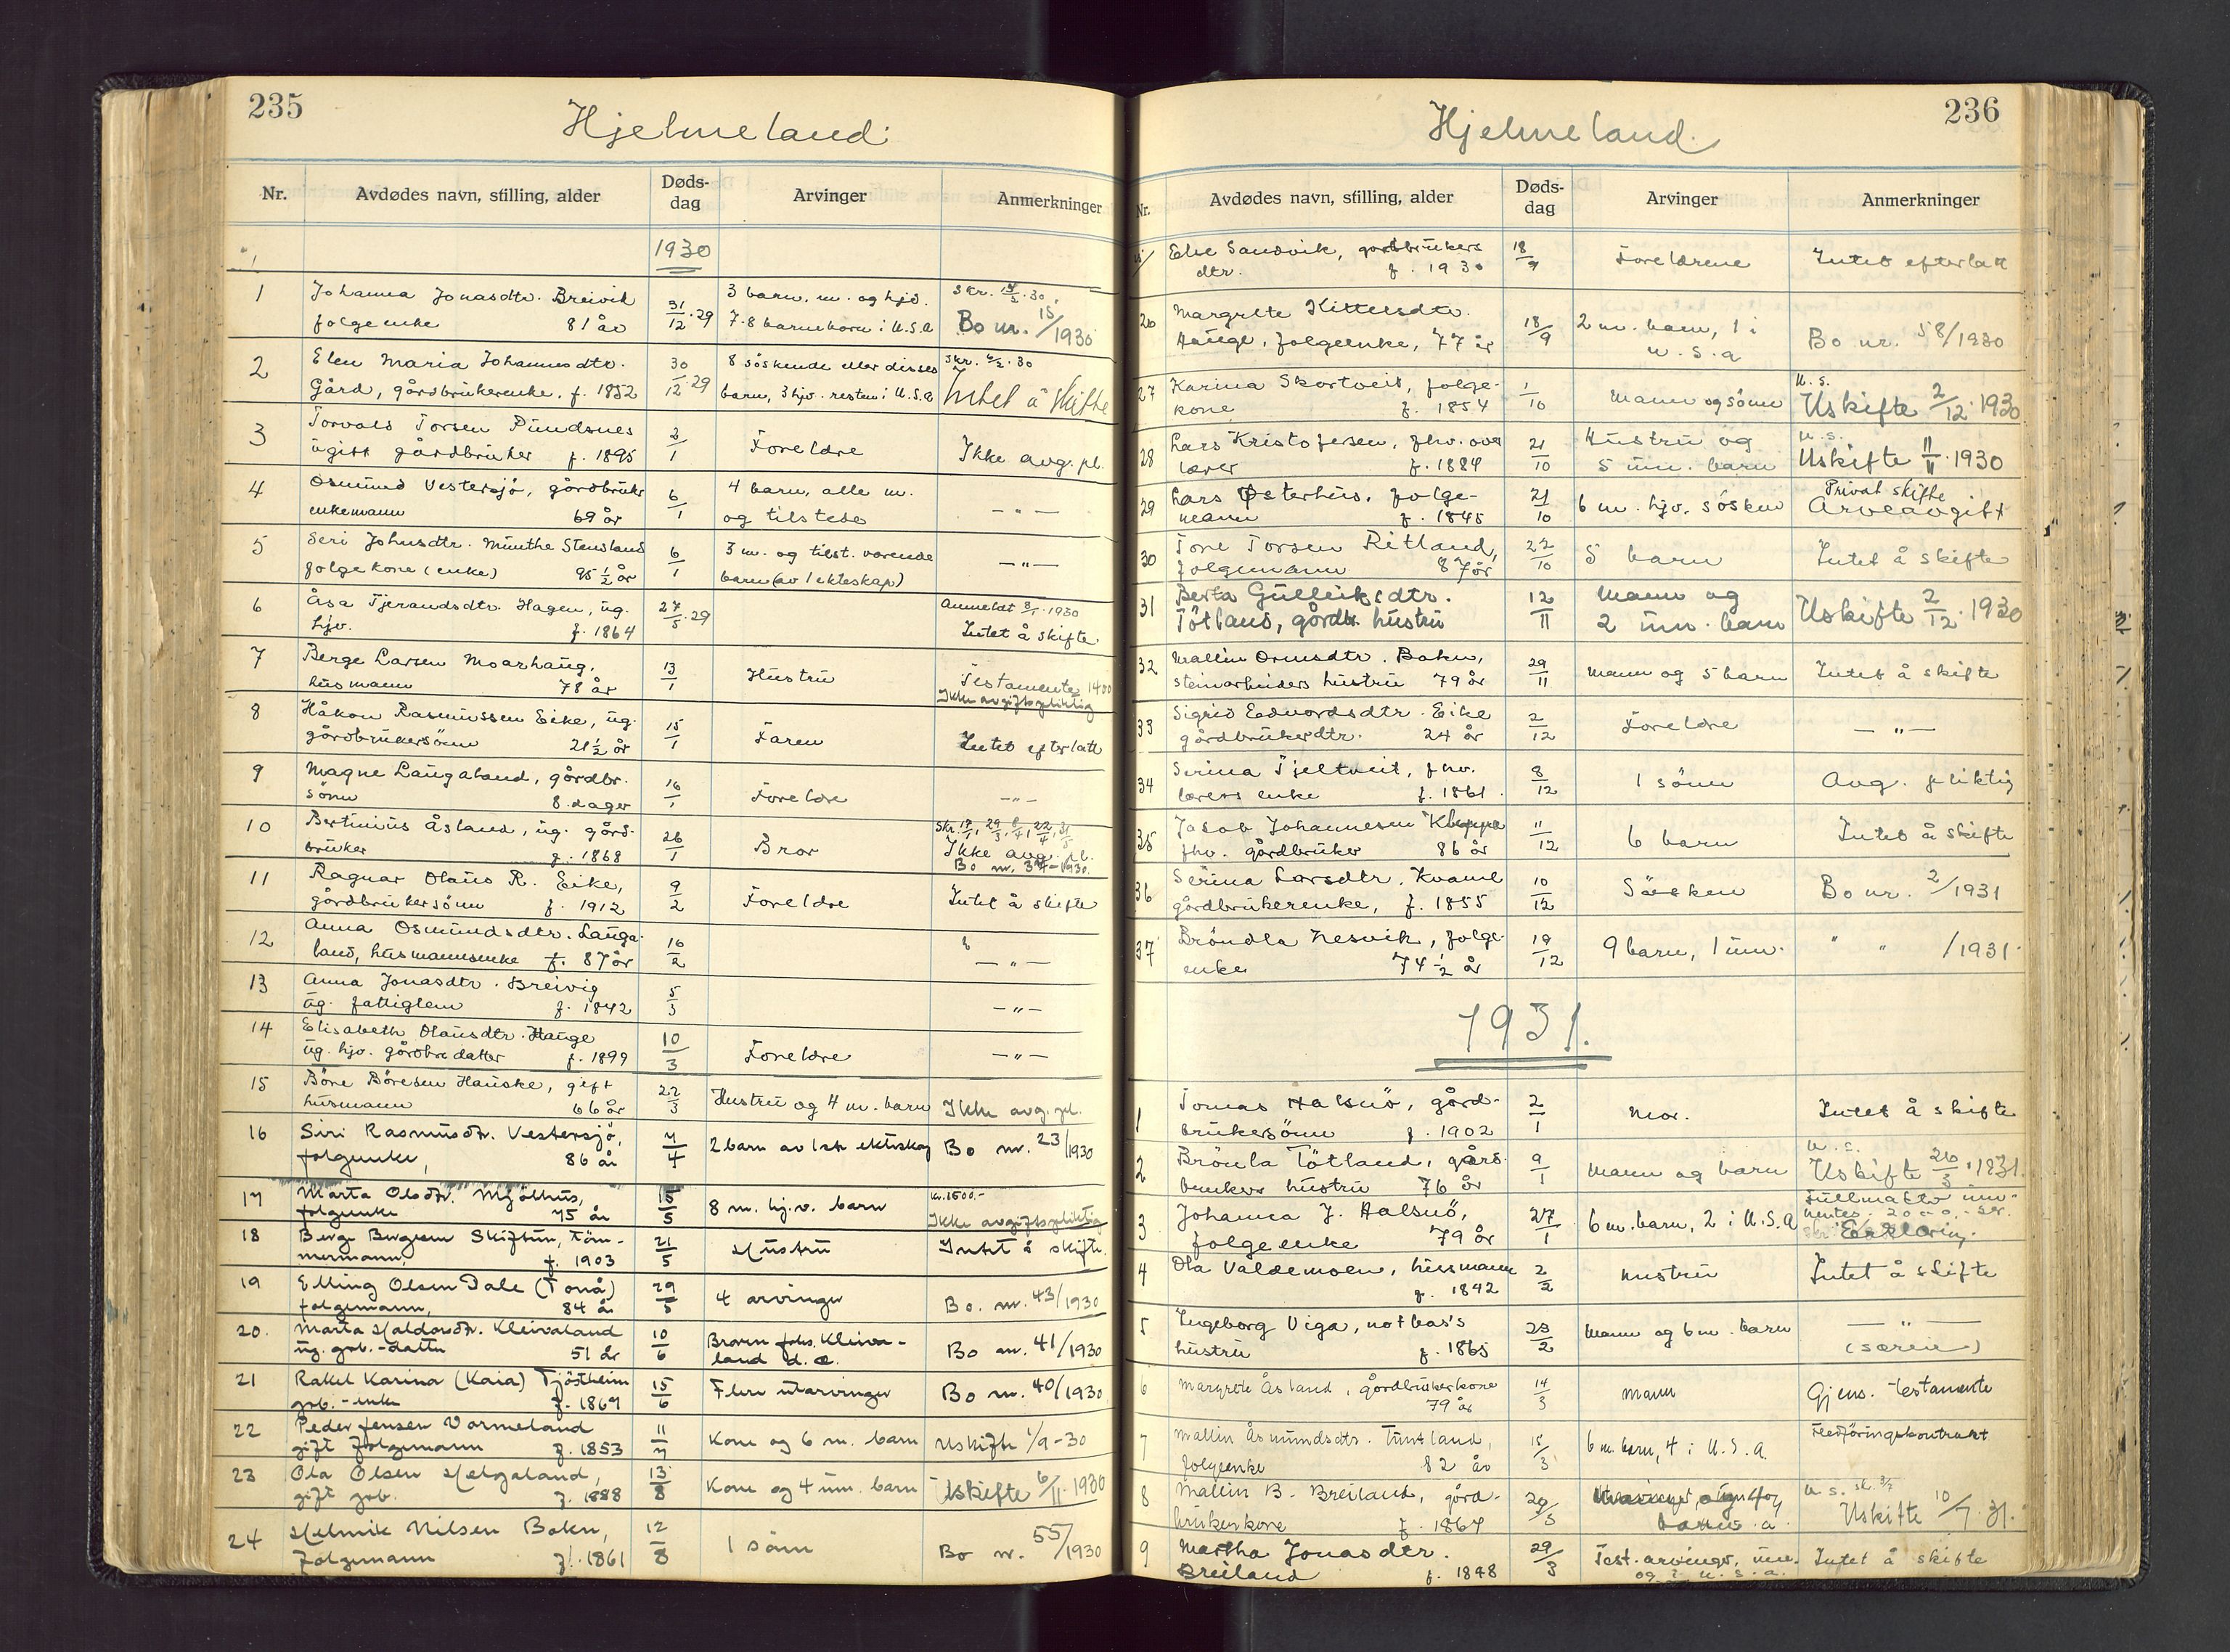 235
Hjelmeland
Nr. Avdødes navn, stilling, alder Døds-dag Arvinger Anmerkninger
1930
1 Johanna Jonasdtr. Breivik 31/12·29 3 barn, m. og hjv. Skr. 30.
folgeenke 81 år 7-8 barnebarn i U.S.A Bo nr. 15/1930
2 Elen Maria Johannesdtr. 30/12·29 8 söskende eller disses Skr. 30
Gård, gårdbrukerenke, f. 1852 barn, 3 hjv. resten i U.S.A Intet å skifte
3 Torvald Torsen Pundsnes 2/1 Foreldre Ikke avg. pl.
ugift gårdbruker f. 1895
4 Osmund Vestersjö, gårdbruker 6/1 4 barn, alle m. — „ —
enkemann 69 år og tilstede
5 Seri Johnsdtr. Munthe Stensland 6/1 3 m. og tilst. værende — „ —
folgekone (enke) 95 ½ år barn (av 1 ekteskap)
6 Åsa Tjerandsdtr. Hagen, ug. 27/5·29 Anmeldt 8/1·1930
hjv. f. 1864 Intet å skifte
7 Berge Larsen Moarhaug, 13/1 Hustru Testamente 1400
husmann 78 år Ikke avgiftspliktig
8 Håkon Rasmussen Eike, ug. 15/1 Faren Intet efterlatt
gårdbrukersönn 21 ½ år
9 Magne Laugaland, gårdbr. 16/1 Foreldre — „ —
sönn 8 dager
10 Bertinius Åsland, ug. gård- 26/1 Bror Ikke avg. pl.
bruker f. 1868 Bo nr. 34-1930.
11 Ragnar Olaus R. Eike, 9/2 Foreldre Intet å skifte
gårdbrukersönn f. 1912
12 Anna Osmundsdtr. Lauga- 16/2 — „ —
land, husmannsenke 87 år
13 Anna Jonasdtr. Breivig 5/3 — „ —
ug. fattiglem f. 1842
14 Elisabeth Olausdtr. Hauge 10/3 Foreldre — „ —
ug. hjv. gårdbr. datter f. 1899
15 Böre Böresen Hauske, gift 22/3 Hustru og 4 m. barn Ikke avg. pl.
husmann 66 år
16 Siri Rasmusdr. Vestersjö, 7/4 2 barn av 1ste ekteskap Bo nr. 23/1930
folgeenke, 86 år
17 Marta Olsdr. Mjölhus, 15/5 8 m. hj.v. barn kr. 1500.-
folgeenke 75 år Ikke avgiftspliktig
18 Berge Bergesen Skiftun, töm- 21/5 Hustru Intet å skifte.
mermann, f. 1903
19 Elling Olsen Dale (Tonå) 29/5 4 arvinger Bo. nr. 43/1930
folgemann, 84 år
20. Marta Haldorsdr. Kleivaland 10/6 Broren Johs. Kleiva- Bo nr. 41/1930
ug. grb.-datter 51 år land d. e.
21 Rakel Karina (Kaia) Tjöstheim 15/6 Flere utarvinger Bo nr. 40/1930
grb.-enke f. 1869
22 Peder Jensen Vormeland 11/7 Kone og 6 m. barn Uskifte 1/9-30
gift folgemann f. 1853
23 Ola Olsen Helgaland, 13/8 Kone og 4 um. barn Uskifte 6/11·1930
gift grb. f. 1888
24 Helmik Nilsen Bokn, 12/8 1 sönn Bo nr. 55/1930
folgemann f. 1861
236
Hjelmeland.
Nr. Avdødes navn, stilling, alder Døds-dag Arvinger Anmerkninger
Else Sandvik, gårdbrukers 18/9 Foreldrene Intet efterlatt
dtr. f. 1930
26 Margrete Kittelsdtr. 18/9 2 m. barn, 1 i Bo nr. 58/1930
Hauge, folgeenke, 77 år U.S.A
27 Karina Skortveit, folge- 1/10 Mann og sönn U.S.
kone f. 1854 Uskifte 2/12·1930
28 Lars Kristofersen, fhv. over 21/10 Hustru og U.S.
lærer f. 1884 5 um. barn Uskifte 11/11·1930
29 Lars Østerhus, folge- 21/10 6 m. hjv. sösken Privat skifte
mann f. 1845 Arveavgift
30 Tore Torsen Ritland, 22/10 5 barn Intet å skifte
folgemann 87 år
31 Berta Gulleiksdtr. 12/11 Mann og Uskifte 2/12·1930
Tötland, gårdbr. hustru 2 um. barn
32 Mallin Ormsdtr. Bokn, 29/11 Mann og 5 barn Intet å skifte
steinarbeiders hustru 79 år
33 Sigrid Edvardsdtr. Eike 2/12 Foreldre — „ —
gårdbrukerdtr. 24 år
34 Serina Tjeltveit, fhv. 8/12 1 sönn Avg. pliktig
lærers enke f. 1861
35 Jacob Johannesen Kleppa 11/12 6 barn Intet å skifte
fhv. gårdbruker 86 år
36 Serina Larsdtr. Kvame 10/12 Sösken Bo nr. 2/1931
gårdbrukerenke, f. 1855
37 Bröndla Nesvik, folge- 19/12 9 barn, 1 um. „ „ /1931.
enke 74 ½ år
1931.
1 Tomas Halsnö, gård- 2/1 Mor. Intet å skifte
brukersönn f. 1902
2 Brönla Tötland, gård- 9/1 Mann og barn U.S.
brukers hustru 76 år Uskifte 26/3·1931.
3 Johanna J. Halsnö, 27/1 6 m. barn, 2 i U.S.A Fullmakt inn-
folgeenke 79 år hentes. Erklæring.
4 Ola Valdemoen, husmann 2/2 Hustru Intet å skifte
f. 1842
5 Ingeborg Viga, notbas's 23/2 Mann og 6 m. barn — „ —
hustru f. 1865 (særeie)
6 Margrete Åsland, gårdbrukerkone 14/3 Mann Gjens. testamente
79 år
7 Mallin Åsmundsdtr. Tuntland, 15/3 6 m. barn, 4 i U.S.A. Fledföringskontrakt
folgeenke 82 år
8 Mallin B. Breiland, gård- 20/5 U.S.
brukerkone f. 1867 Uskifte 10/7.31.
9 Martha Jonasdtr. 29/5 Test. arvinger, inn. Intet å skifte
Breiland f. 1848 og i U.S.A.